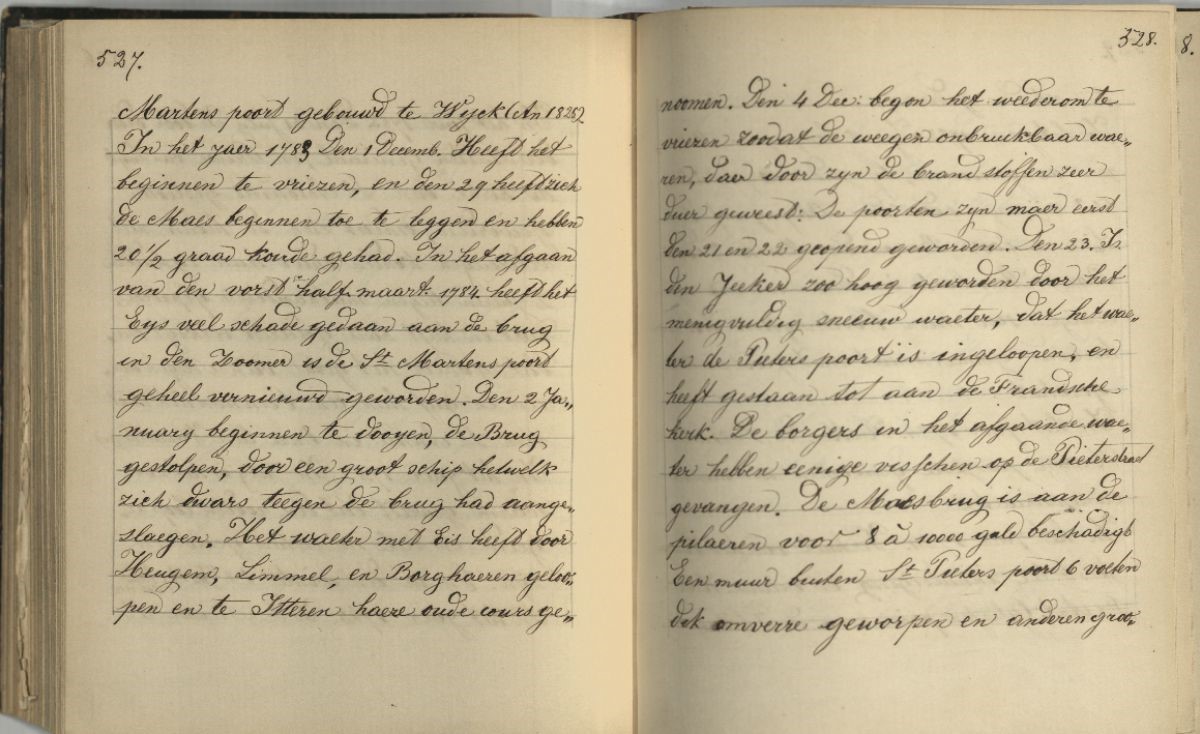 527.
Martens poort gebouwd te Wyck (An 1825)
In het jaer 1783 Den 1 Decemb. Heeft het
beginnen te vriezen, en den 29 heeft zich
de Maes beginnen toe te leggen en hebben
20 1/2 graad koude gehad. In het afgaan
van den vorst half maart. 1784 heeft het
Eys veel schade gedaan aan de brug
in den Zoomer is de St Martens poort
geheel vernieuwd geworden. Den 2 Ja„
nuary beginnen te dooyen, de Brug
gestolpen, door een groot schip hetwelk
zich dwars teegen de brug had aange„
slaegen. Het waeter met Eis heeft door
Heugem, Limmel, en Borghaeren geloo„
pen en te Itteren haere oude cours ge„
528.
noomen. Den 4 Dec: begon het weederom te
vriezen zoodat de weegen onbruikbaar wae„
ren, daer door zyn de brand stoffen zeer
duer geweest: De poorten zyn maer eerst
den 21 en 22 geopend geworden. Den 23. Is
den Jeeker zoo hoog geworden door het
menigvuldig sneeuw waeter, dat het wae„
ter de Pieters poort is ingeloopen, en
heeft gestaan tot aan de Fransche
kerk. De borgers in het afgaande wae„
ter hebben eenige visschen op de Pieterstraet
gevangen. De Maesbrug is aan de
pilaeren voor 8 à 10000 guld beschadigt
Een muur buiten St Pieters poort 6 voeten
dik omverre geworpen en anderen groo„
8.